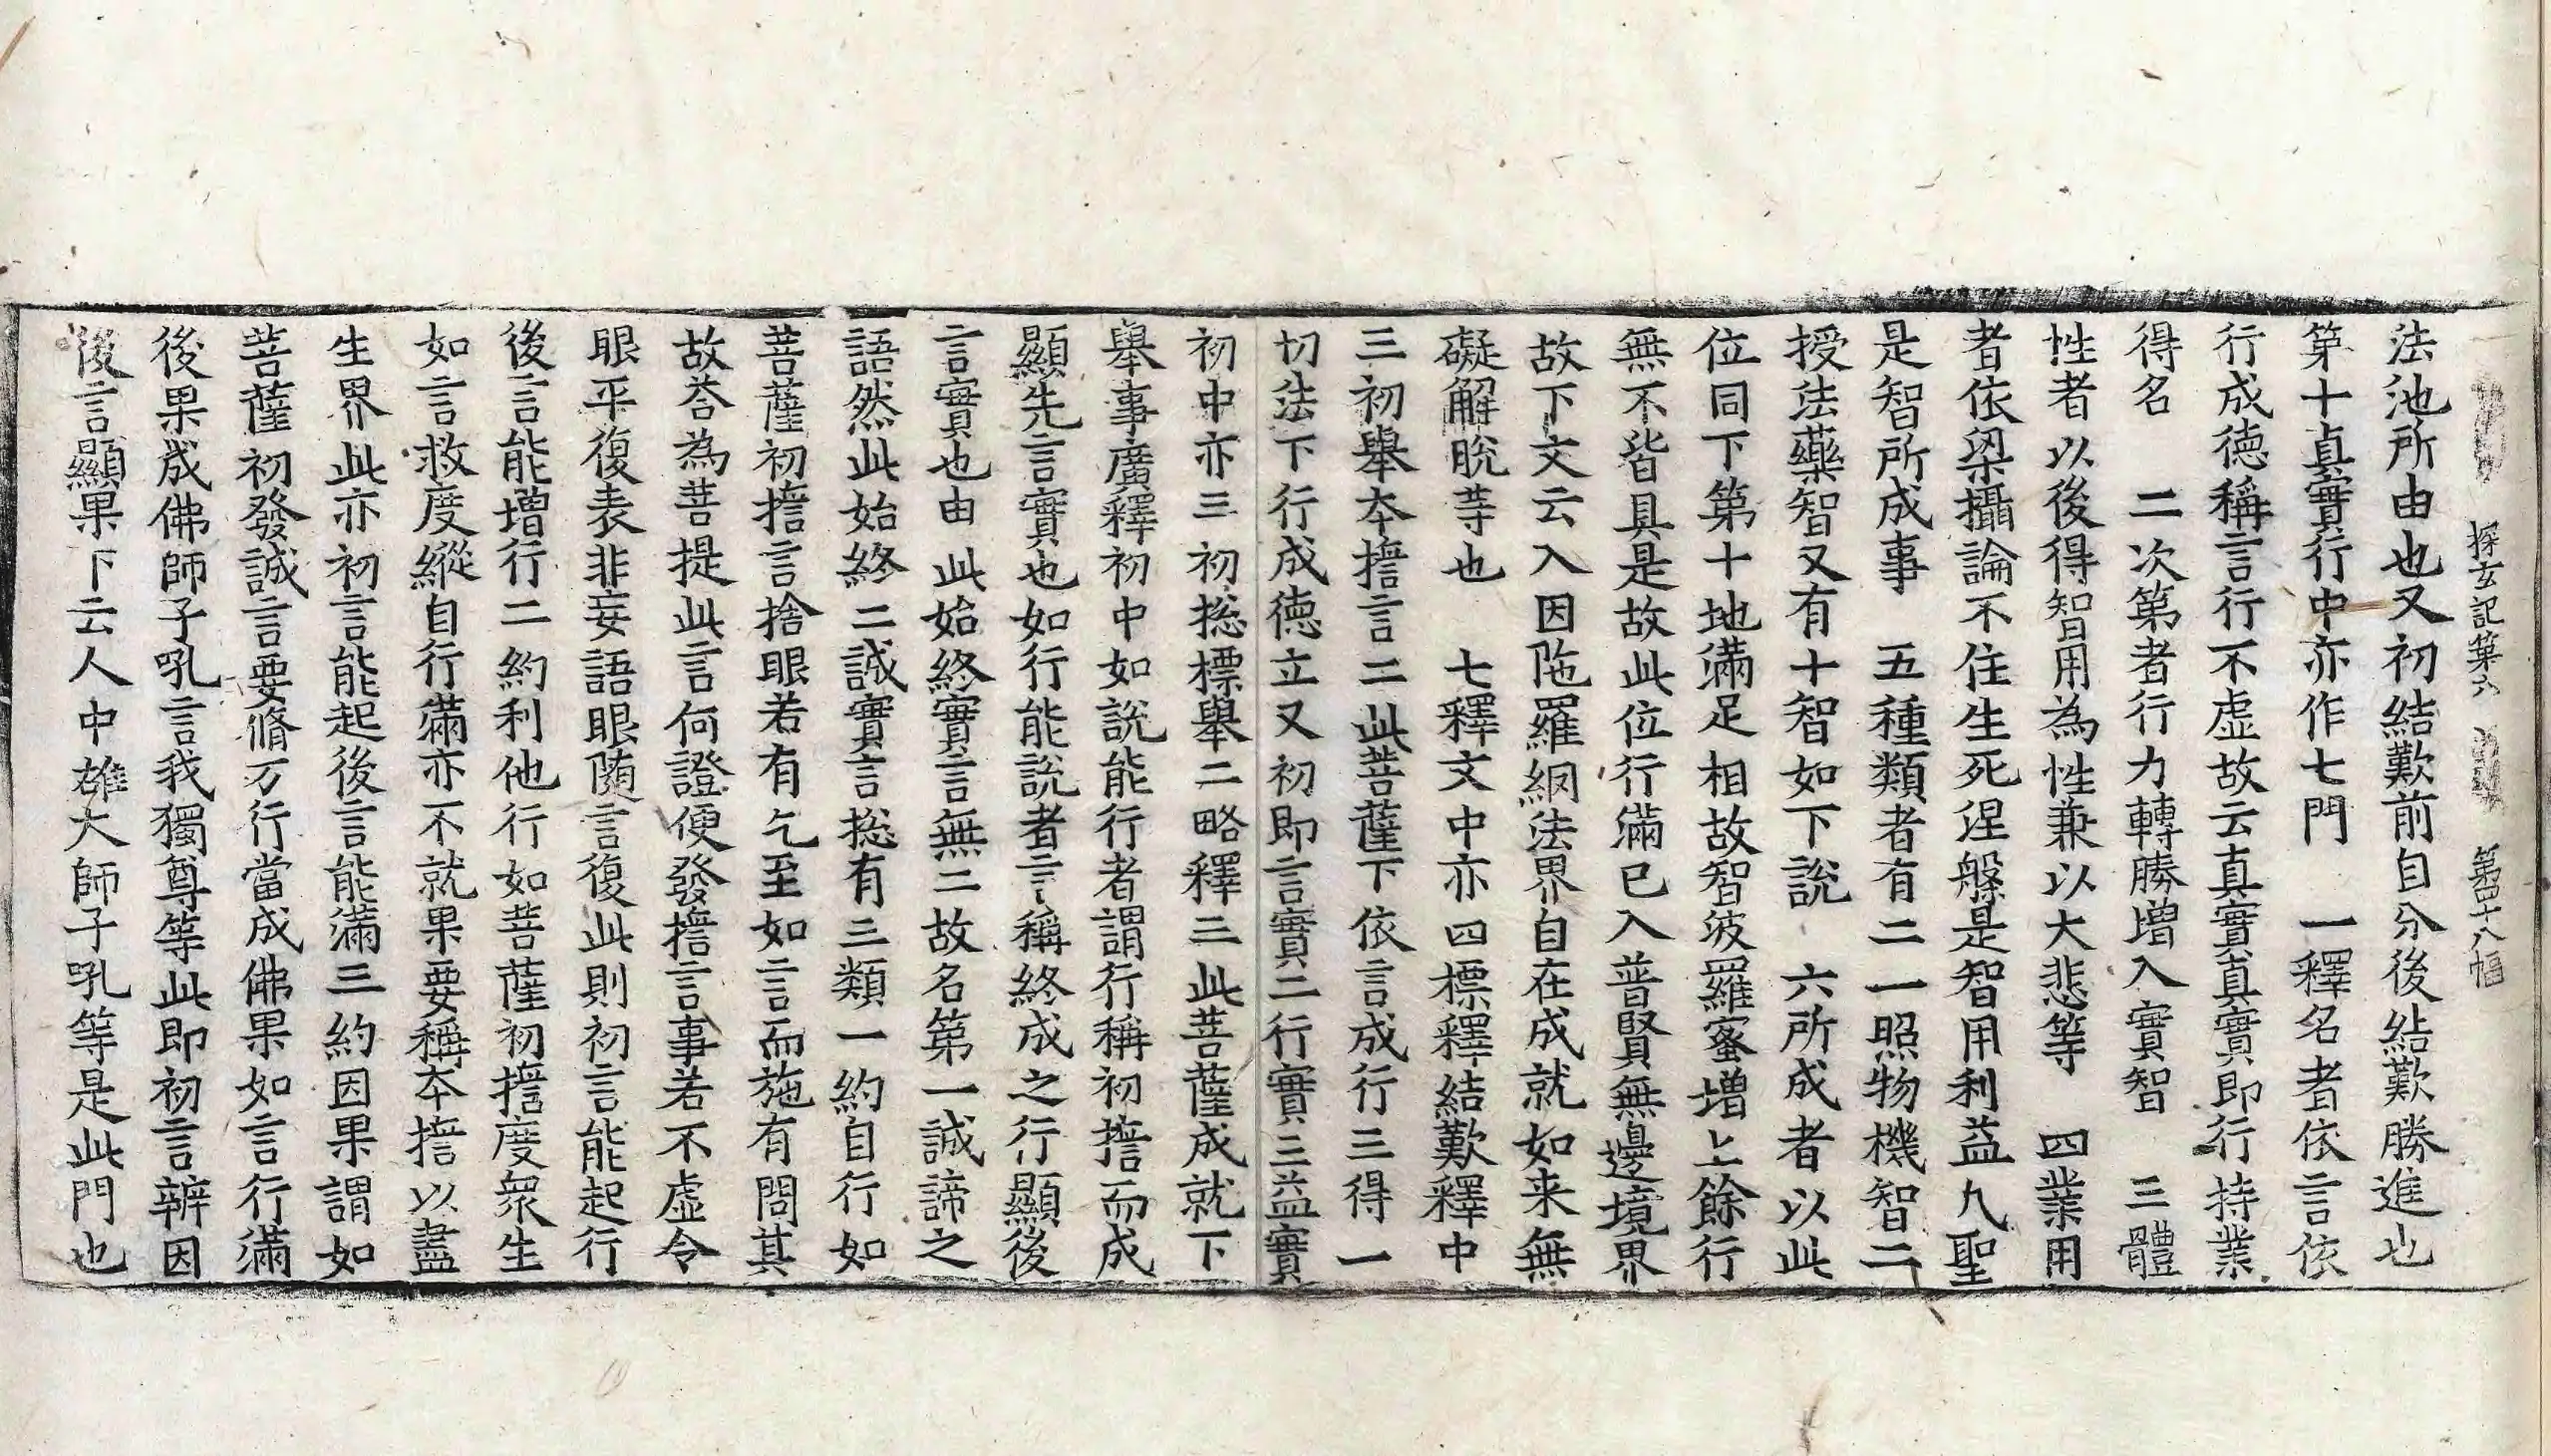 探玄記第六 第四十八幅
法池所由也又初結歎前自分後結歎勝進也
第十真實行中亦作七門 一釋名者依言依
行成德稱言行不虛故云真實真實即行持業
得名 二次第者行力轉勝增入實智 三體
性者以後得智用為性兼以大悲等 四業用
者依梁攝論不住生死涅槃是智用利益凡聖
是智所成事 五種類者有二一照物機智二
授法藥智又有十智如下說 六所成者以此
位同下第十地滿足相故智波羅蜜增上餘行
無不皆具是故此位行滿已入普賢無邊境界
故下文云入因陁羅網法界自在成就如来無
礙解脫等也 七釋文中亦四標釋結歎釋中
三初舉夲擔言二此菩薩下依言成行三得一
切法下行成德立又初即言實二行實三益實
初中亦三初捴標舉二略釋三此菩薩成就下
舉事廣釋初中如說能行者謂行稱初擔而成
顯先言實也如行能說者言稱終成之行顯後
言實也由此始終實言無二故名第一誠諦之
語然此始終二誠實言捴有三類一約自行如
菩薩初擔言捨眼若有乞至如言而施有問其
故荅為菩提此言何證便發擔言事若不虛令
眼平復表非妄語眼隨言復此則初言能起行
後言能增行二約利他行如菩薩初擔度眾生
如言救度縱自行滿亦不就果要稱夲擔以盡
生界此亦初言能起後言能滿三約因果謂如
菩薩初發誠言要脩万行當成佛果如言行滿
後果成佛師子吼言我獨尊等此即初言辨因
後言顯果下云人中雄大師子吼等是此門也